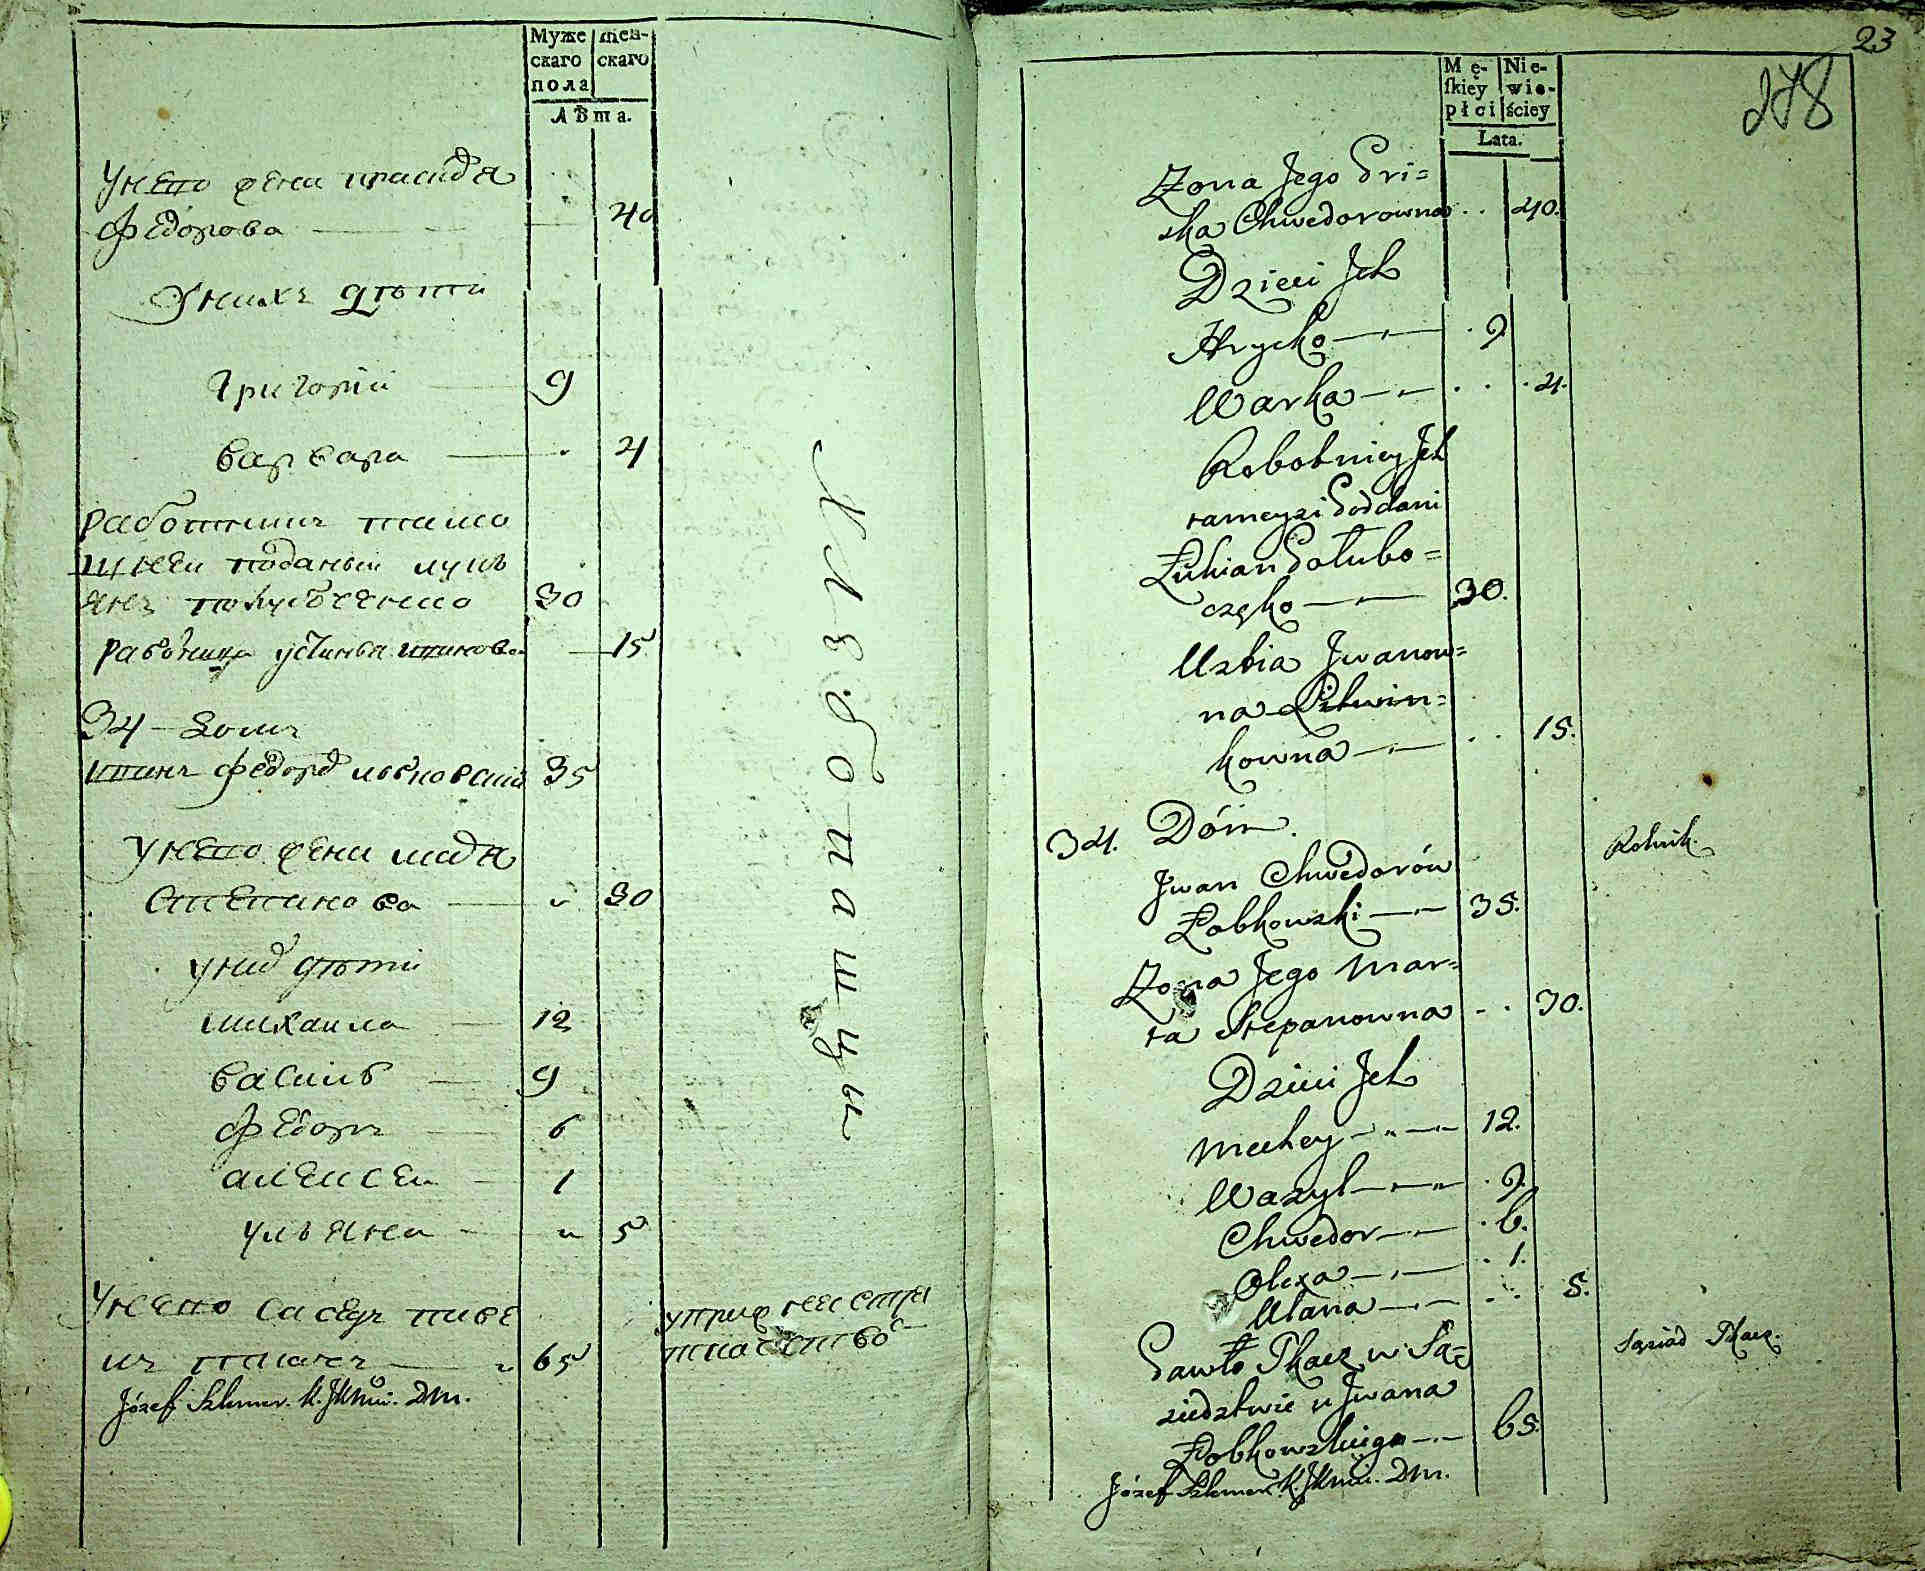 Муже
скаго
пола
жен-
скаго
Лѣта.
У него жена Праскѣа
Федорова 40
У нихъ дѣти
Григорій 9
Варвара 4
Работникъ тамо
шней поданый Лукь
янъ Полубоченко 30
Работница Устинья Иванова 15
34 - домъ
Иванъ Федоровъ Лобковский 35
У него жена Марѳа
Степанова 30
У них дѣти
Михаила 12
Василь 9
Федоръ 6
Алексей 1
Ульяна 5
У него сосѣдъ Паве
лъ ткачъ 65
Józef Szlemer. K. JKMci. DM.
Хлѣбопашцы
ткачество
23
278
Mę-
skiey
płci
Nie-
wie-
ściey
Lata.
Żona Jego Pri=
ska Chwedorowna 40.
Dzieci Jch
Hrycko 9
Warka 4.
Robotnicy Jch
tameyszi Poddani
Łukian Połubo=
częko 30.
Ustia Jwanow=
na Litwin=
kowna 15.
34. Dóm.
Jwan Chwedorów
Łobkowski 35. Rolnik.
Zona Jego Mar=
ta Stepanowna 30.
Dzieci Jch
Michey 12.
Wasyl 9.
Chwedor 6.
Olexa 1.
Ulana 5.
Pawło Tkacz w Są=
siedztwie u Jwana
Łobkowskiego 65. Sąsiad Tkacz.
Józef Szlemer. K. JKMci. DM.